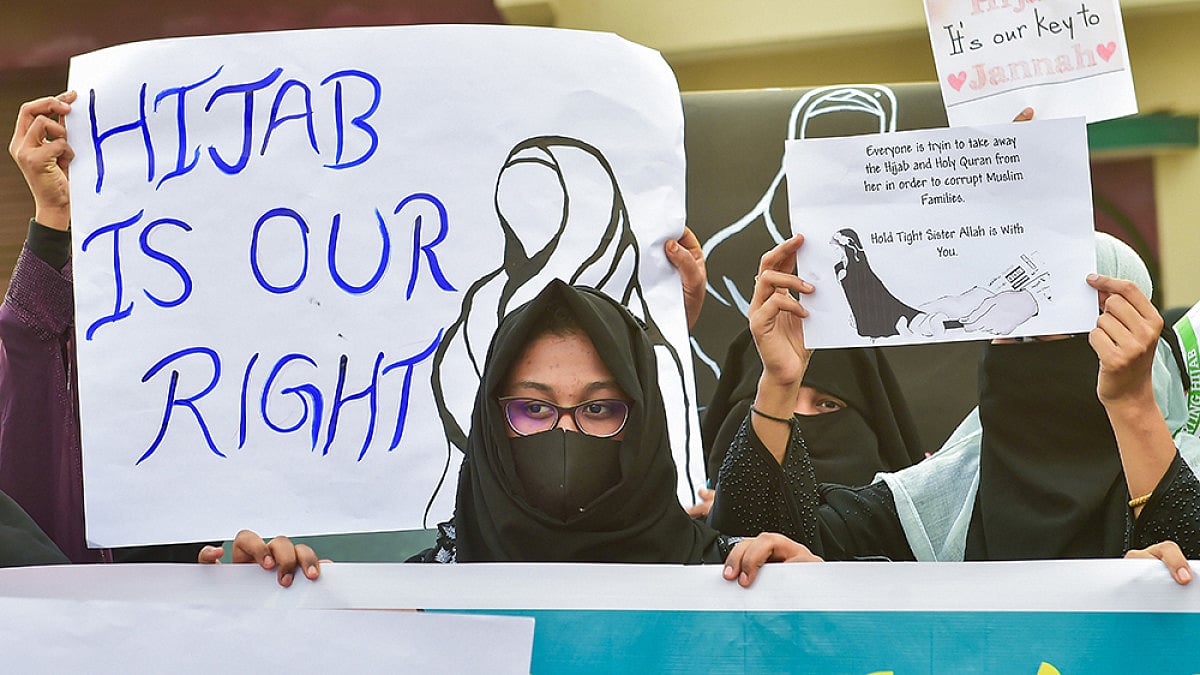 HIJAB
IS OUR
RIGHT
Hijab
It's our key to
Jannah
Everyone is tryin to take away
the Hijab and Holy Quran from
her in order to corrupt Muslim
Families.
Hold Tight Sister Allah is With
You.
HIJAB